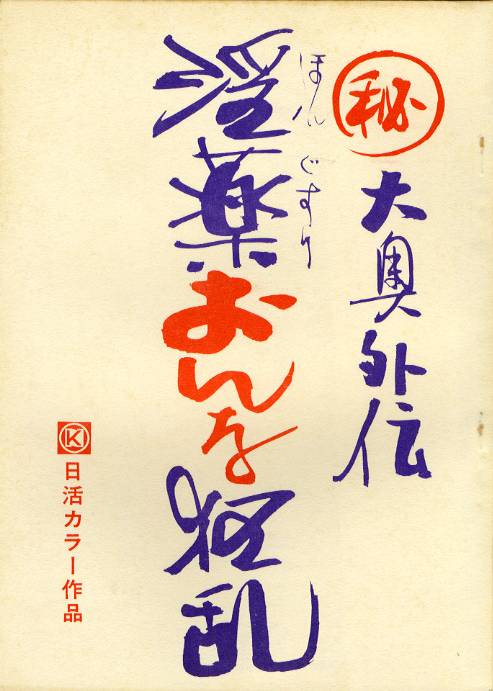 ㊙大奥外伝
淫薬おんな狂乱
ほんぐすり
K
日活カラー作品